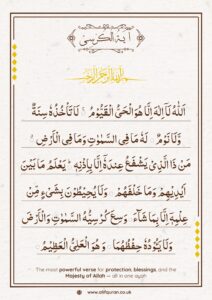 آية الكرسي
بسم الله الرحمن الرحيم
اَللّٰهُ لَاۤ اِلٰهَ اِلَّا هُوَ الْحَیُّ الْقَیُّوْمُ ۚ لَا تَاْخُذُهٗ سِنَةٌ
وَّلَا نَوْمٌ ؕ لَهٗ مَا فِی السَّمٰوٰتِ وَمَا فِی الْاَرْضِ ؕ
مَنْ ذَا الَّذِیْ یَشْفَعُ عِنْدَهٗۤ اِلَّا بِاِذْنِهٖ ؕ یَعْلَمُ مَا بَیْنَ
اَیْدِیْهِمْ وَمَا خَلْفَهُمْ ۚ وَلَا یُحِیْطُوْنَ بِشَیْءٍ مِّنْ
عِلْمِهٖۤ اِلَّا بِمَا شَآءَ ۚ وَسِعَ كُرْسِیُّهُ السَّمٰوٰتِ وَالْاَرْضَ ۚ
وَلَا یَـُٔوْدُهٗ حِفْظُهُمَا ۚ وَهُوَ الْعَلِیُّ الْعَظِیْمُ
The most powerful verse for protection, blessings, and the
Majesty of Allah — all in one ayah
www.alifquran.co.uk